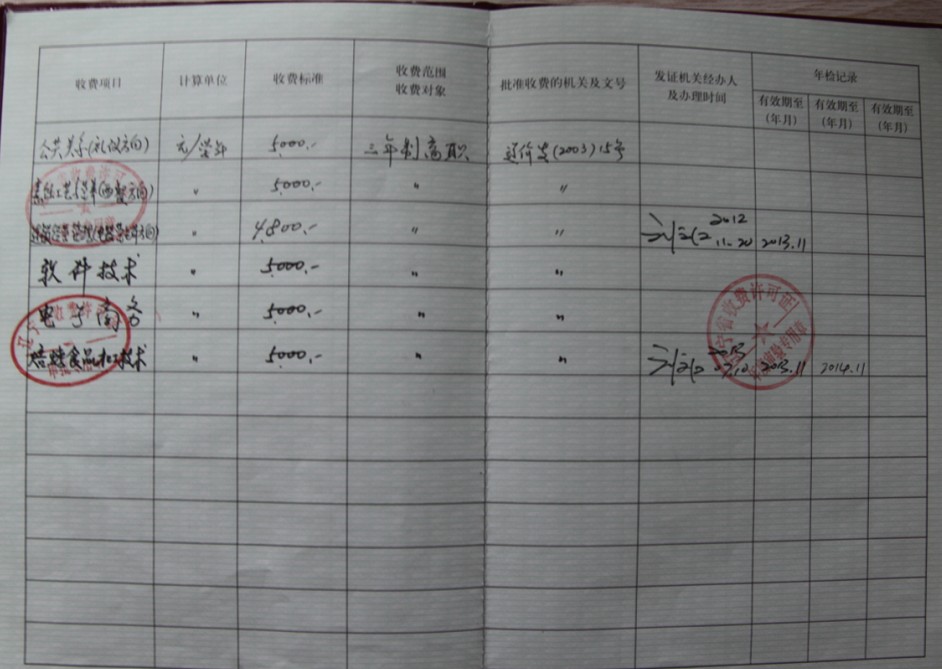 收费项目 计算单位 收费标准 收费范围 收费对象 批准收费的机关及文号 发证机关经办人及办理时间 年检记录
有效期至(年月) 有效期至(年月) 有效期至(年月)
公共关系(礼仪方向) 元/学年 5000.- 三年制高职 辽价发(2003)15号
〃 5000.- 〃 〃
〃 4800.- 〃 〃 2012 11.20 2013.11
软件技术 〃 5000.- 〃 〃
电子商务 〃 5000.- 〃 〃
焙烤食品加工技术 〃 5000.- 〃 〃 2013 2013.11 2014.11
省收费许可证